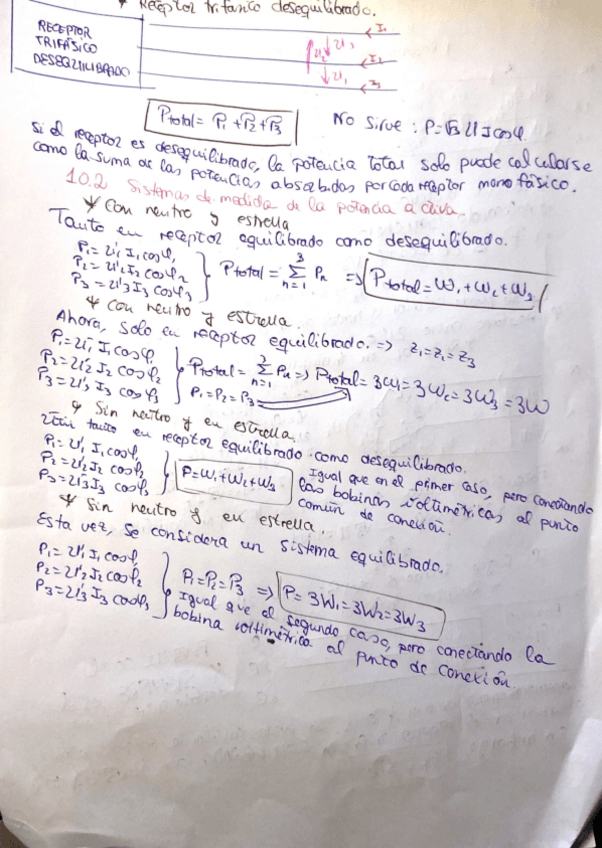 Receptor trifásico desequilibrado.
RECEPTOR
TRIFÁSICO
DESEQUILIBRADO
I₁
I₂
I₃
U₃
U₂
U₁
Ptotal = P₁ + P₂ + P₃
No sirve : P = √3 U I cosφ.
Si el receptor es desequilibrado, la potencia total solo puede calcularse
como la suma de las potencias absorbidas por cada receptor monofásico.
10.2 Sistemas de medida de la potencia activa.
Con neutro y estrella
Tanto en receptor equilibrado como desequilibrado.
P₁ = U₁ I₁ cosφ₁
P₂ = U₂ I₂ cosφ₂
P₃ = U₃ I₃ cosφ₃
Ptotal = Σ Pn n=1 3 => Ptotal = W₁ + W₂ + W₃
Con neutro y estrella.
Ahora, solo en receptor equilibrado. => Z₁ = Z₂ = Z₃
P₁ = U₁ I₁ cosφ₁
P₂ = U₂ I₂ cosφ₂
P₃ = U₃ I₃ cosφ₃
Ptotal = Σ Pn n=1 3 => Ptotal = 3W₁ = 3W₂ = 3W₃ = 3W
P₁ = P₂ = P₃
Sin neutro y en estrella.
tanto en receptor equilibrado como desequilibrado.
P₁ = U₁ I₁ cosφ₁
P₂ = U₂ I₂ cosφ₂
P₃ = U₃ I₃ cosφ₃
P = W₁ + W₂ + W₃
Igual que en el primer caso, pero conectando
las bobinas voltimétricas al punto
común de conexión.
Sin neutro y en estrella.
Esta vez, se considera un sistema equilibrado.
P₁ = U₁ I₁ cosφ₁
P₂ = U₂ I₂ cosφ₂
P₃ = U₃ I₃ cosφ₃
P₁ = P₂ = P₃ => P = 3W₁ = 3W₂ = 3W₃
Igual que el segundo caso, pero conectando la
bobina voltimétrica al punto de conexión.